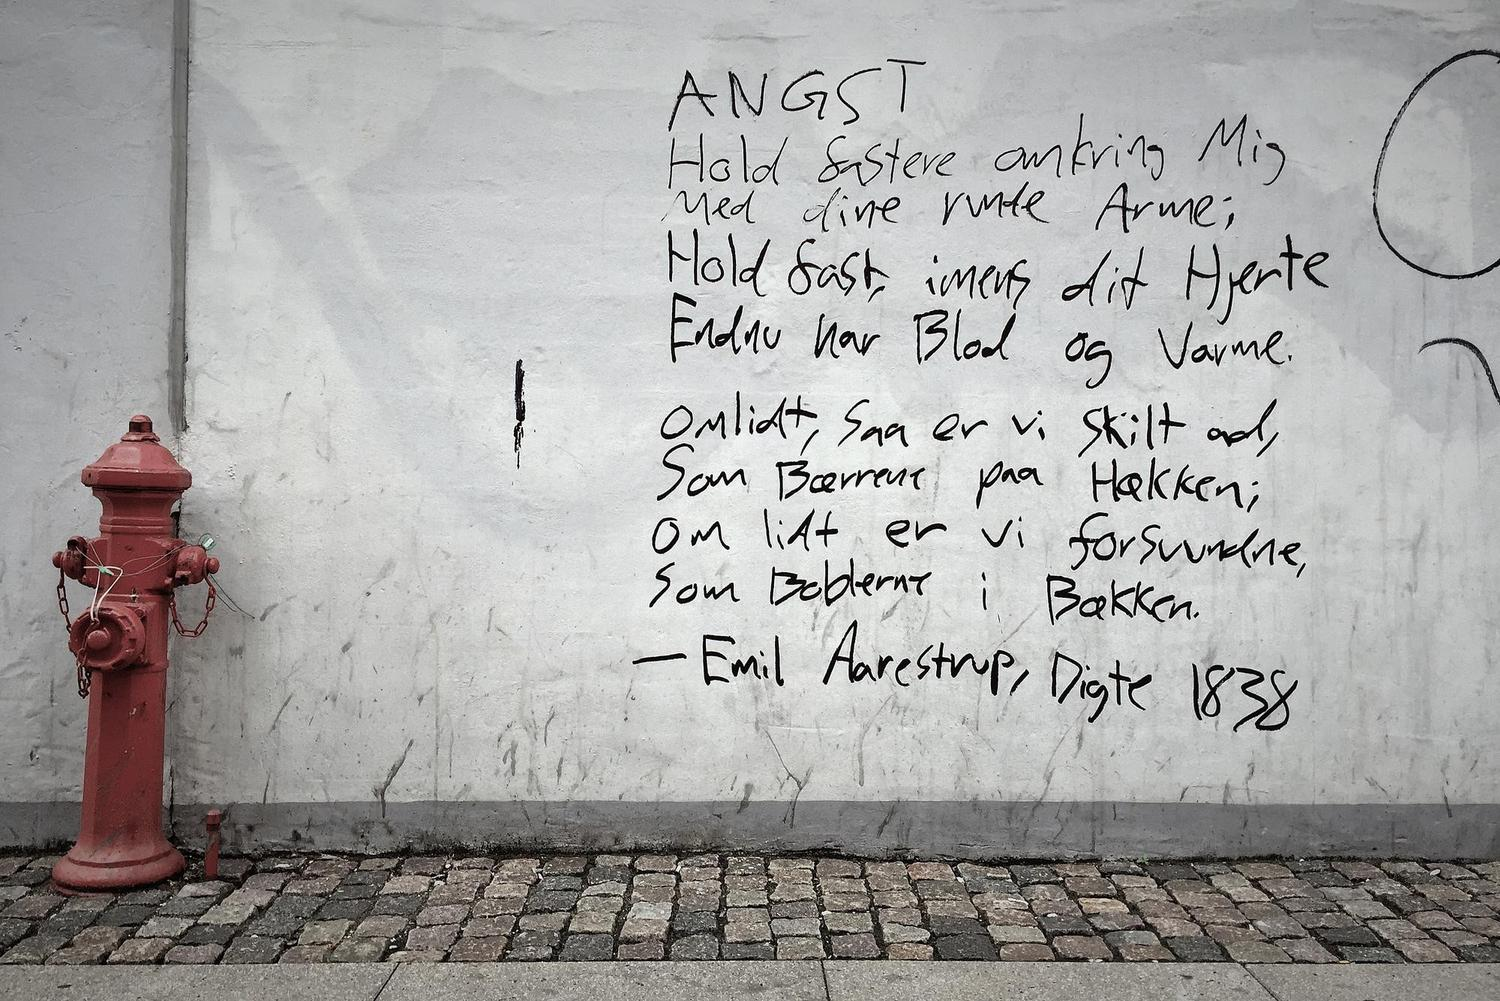 ANGST
Hold fastere omkring Mig
Med dine runde Arme;
Hold fast, imens dit Hjerte
Endnu har Blod og Varme.
Om lidt, saa er vi skilt ad,
Som Bærrene paa Hækken;
Om lidt er vi forsvundne,
Som Boblerne i Bækken.
— Emil Aarestrup, Digte 1838